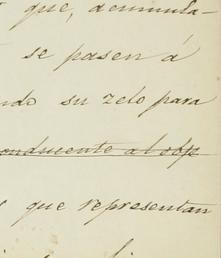 que, acumula-
se pasen á
ndo su zelo para
onducente al obje
que representan